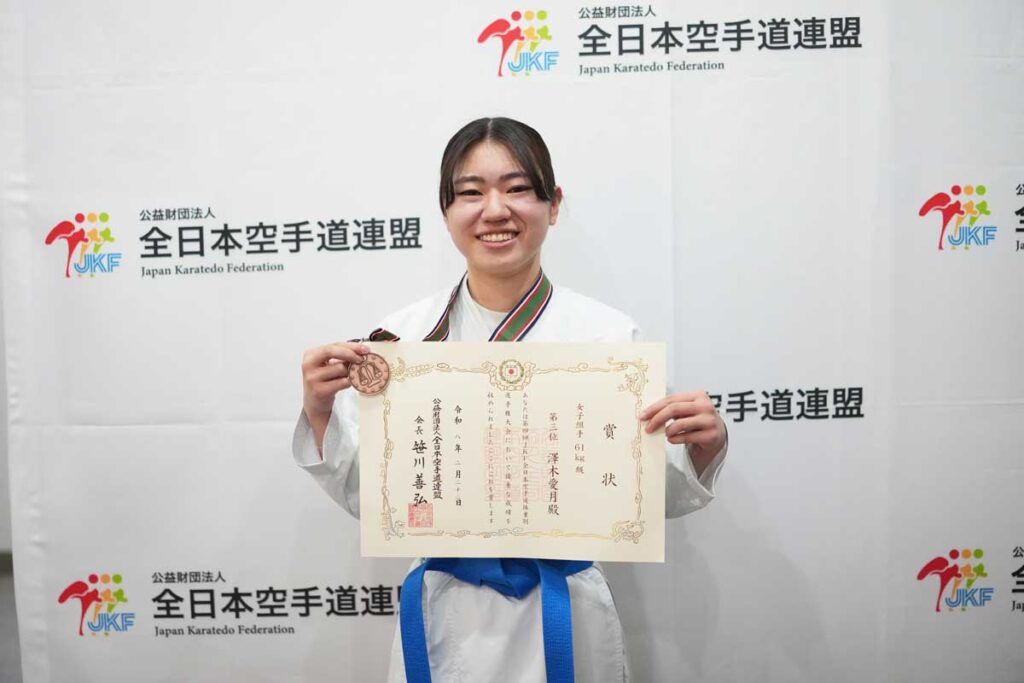 公益財団法人
全日本空手道連盟
Japan Karatedo Federation
JKF
公益財団法人
全日本空手道連盟
Japan Karatedo Federation
JKF
JKF
空手道連盟
公益財団法人
全日本空手道連
Japan Karatedo Federation
JKF
JKF
賞状
女子組手 61kg級
第三位 澤木愛月殿
選手権大会において優秀な成績を
公益財団法人全日本空手道連盟
会長 笹川善弘